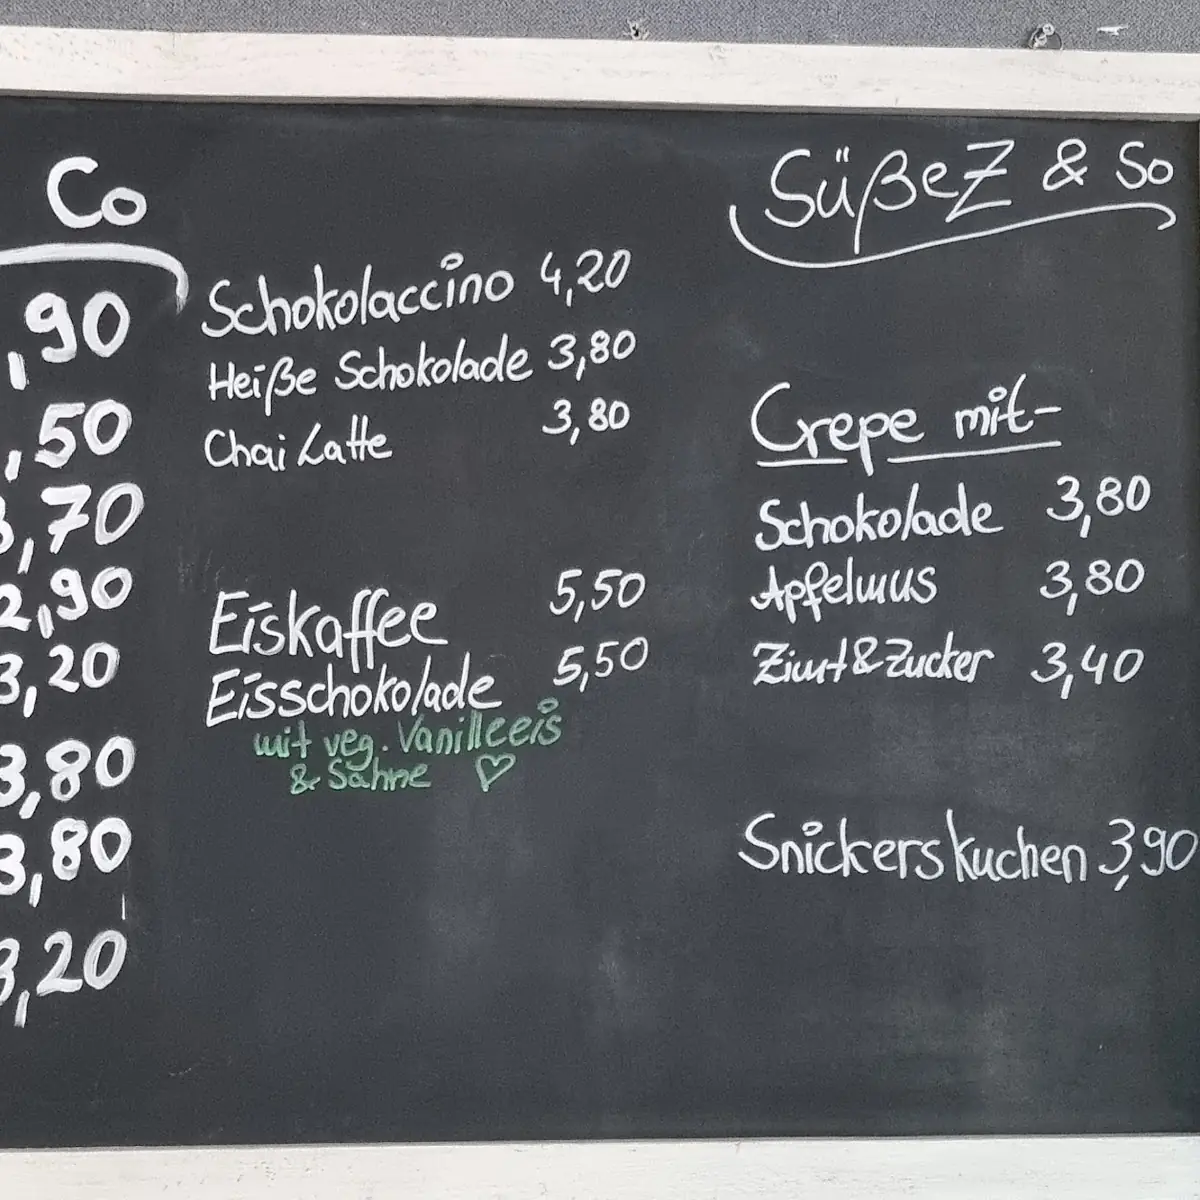 Co
,90
,50
3,70
2,90
3,20
3,80
3,80
3,20
Schokolaccino 4,20
Heiße Schokolade 3,80
Chai Latte 3,80
Eiskaffee 5,50
Eisschokolade 5,50
mit veg. Vanilleeis
& Sahne ♡
SüßeZ & So
Crepe mit-
Schokolade 3,80
Apfelmus 3,80
Zimt & Zucker 3,40
Snickerskuchen 3,90